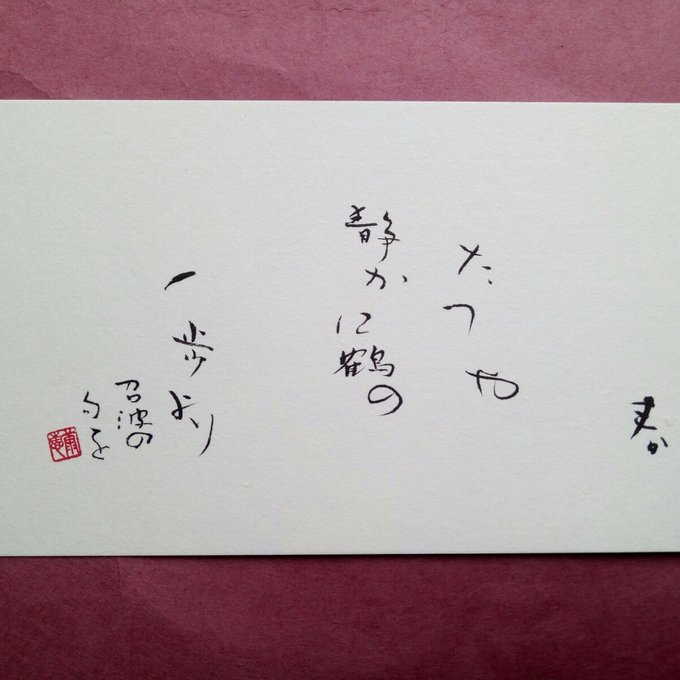 春
たつや
静かに鶴の
一歩より
召波の
句を